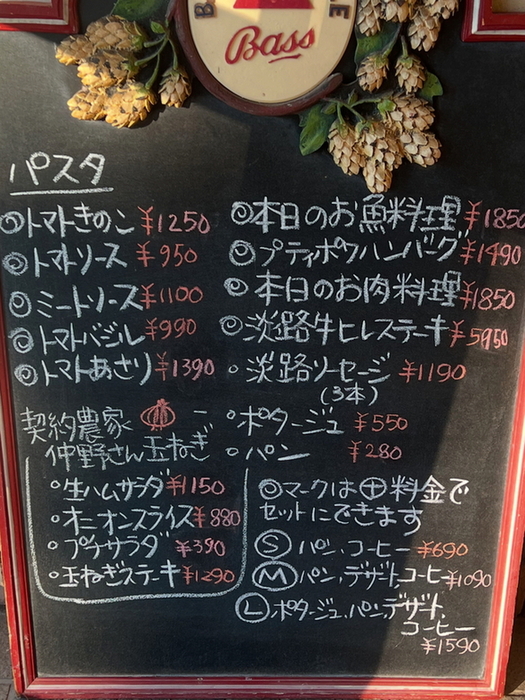 Bass
パスタ
◎トマトきのこ ¥1250
◎トマトソース ¥950
◎ミートソース ¥1100
◎トマトバジル ¥990
◎トマトあさり ¥1390
契約農家
仲野さん玉ねぎ
・生ハムサラダ ¥1150
・オニオンスライス ¥880
・プチサラダ ¥390
・玉ねぎステーキ ¥1290
◎本日のお魚料理 ¥1850
◎プティポワハンバーグ ¥1490
◎本日のお肉料理 ¥1850
◎淡路牛ヒレステーキ ¥5950
・淡路ソーセージ ¥1190
(3本)
・ポタージュ ¥550
・パン ¥280
◎マークは⊕料金で
セットにできます
Ⓢ パン、コーヒー ¥690
Ⓜ パン、デザート、コーヒー ¥1090
Ⓛ ポタージュ、パン、デザート、
コーヒー
¥1590